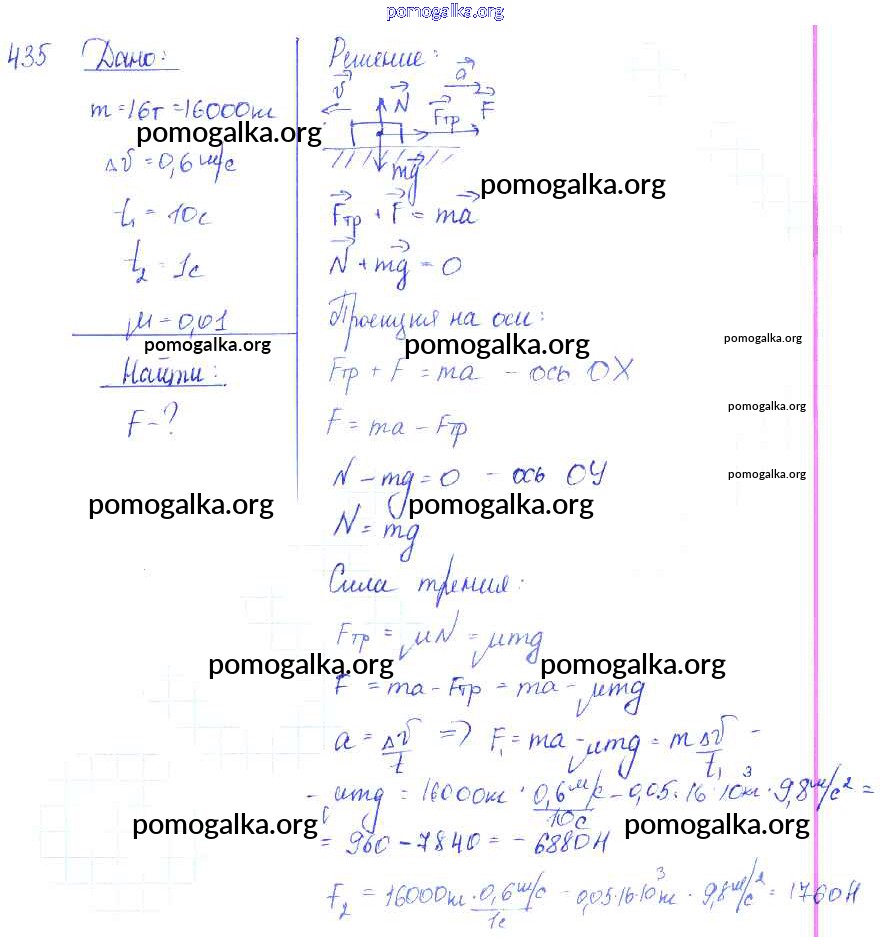 pomogalka.org
435 Дано:
m = 16т = 16000кг
pomogalka.org
Δv = 0,6 м/с
t₁ = 10с
t₂ = 1с
μ = 0,01
pomogalka.org
Найти:
F - ?
pomogalka.org
Решение:
v N a Fтр F
mg
pomogalka.org
Fтр + F = ma
N + mg = 0
Проекция на оси:
pomogalka.org
pomogalka.org
Fтр + F = ma - ось OX
pomogalka.org
F = ma - Fтр
N - mg = 0 - ось OY
pomogalka.org
pomogalka.org
N = mg
Сила трения:
Fтр = μN = μmg
pomogalka.org pomogalka.org
F = ma - Fтр = ma - μmg
a = Δv/t => F₁ = ma - μmg = m Δv/t₁ -
- μmg = 16000кг · 0,6 м/с / 10с - 0,05 · 16 · 10³ кг · 9,8 м/с² =
pomogalka.org pomogalka.org
= 960 - 7840 = - 6880 Н
F₂ = 16000кг · 0,6 м/с / 1с - 0,05 · 16 · 10³ кг · 9,8 м/с² = 1760 Н